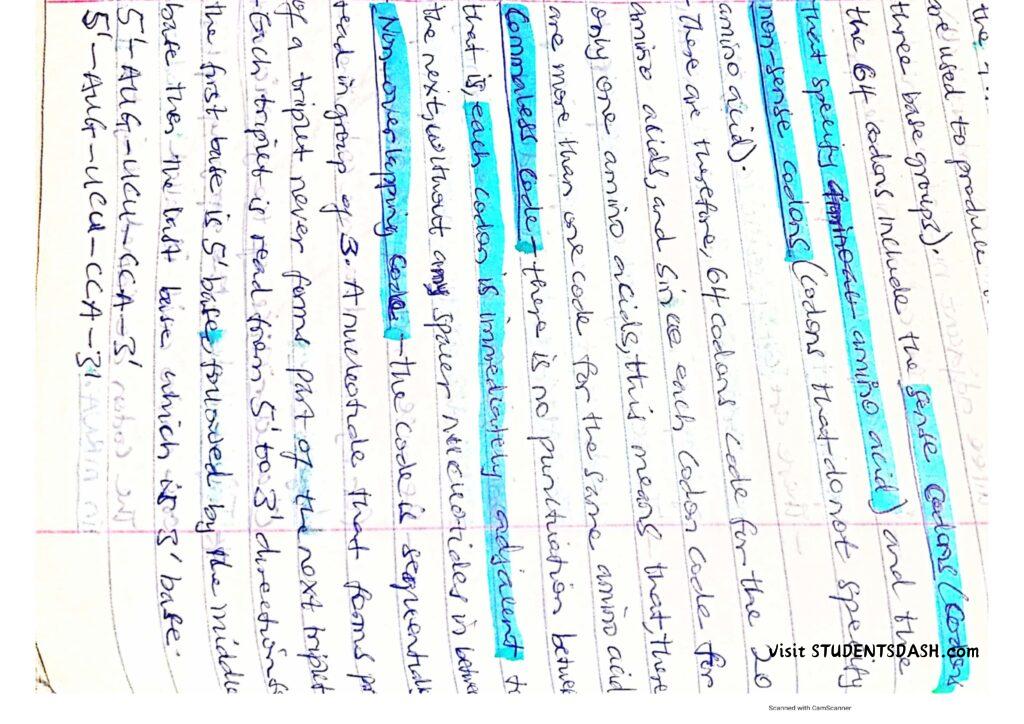 are used to produce
three base groups).
the 64 codons include the sense codons (codons
that specify amino acid) and three
non-sense codons (codons that do not specify
amino acid).
- There are therefore, 64 codons code for the 20
amino acids, and since each codon code for
only one amino acids, this means that, there
are more than one code for the same amino acid
Commaless code - there is no puntuation betwee
that is, each codon is immediately adjacent t
the next, without any spacer nucleotides in betwee
Non-overlapping code - the code is sequential
read in group of 3. A nucleotide that forms p
of a triplet never forms part of the next triplet
- Each triplet is read from 5' to 3' directions
the first base is 5' base followed by the middle
base then the last base which is 3' base.
5'-AUG-UCU-CCA-3'
5'-AUG-UCU-CCA-3'
Visit STUDENTSDASH.com
Scanned with CamScanner